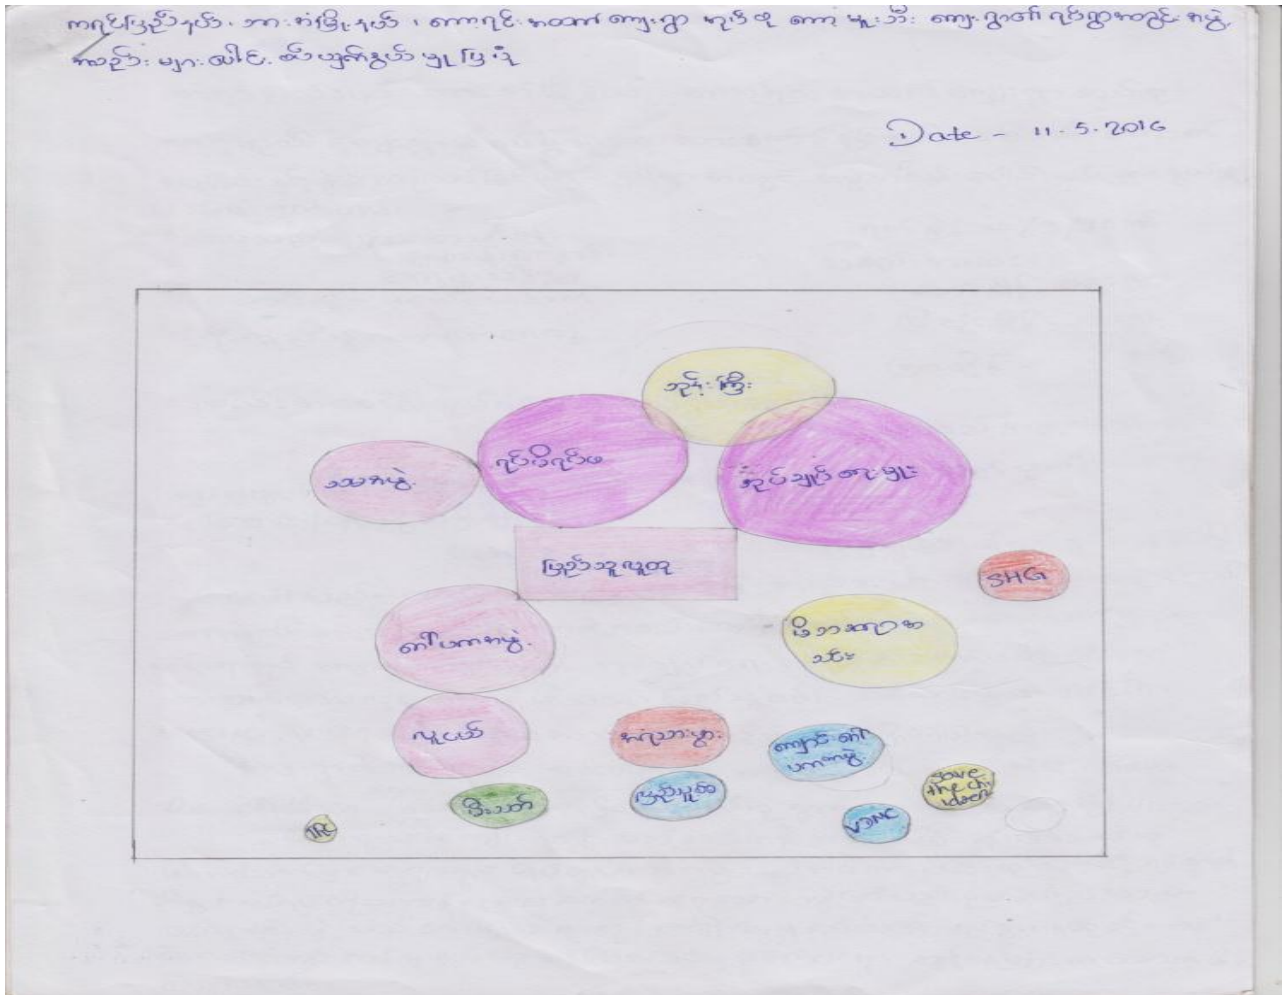 ကရင်ပြည်နယ်၊ ဘားအံမြို့နယ်၊ ကော့ရင်းအထက်ကျေးရွာအုပ်စု ကော့မူးသီးကျေးရွာ၏ ရပ်ရွာအတွင်းအဖွဲ့
အစည်းများပေါင်းစပ်ယှက်နွယ်မှုပြပုံ
Date - 11.5.2016
ဘုန်းကြီး
ရပ်မိရပ်ဖ
အုပ်ချုပ်ရေးမှူး
သသအဖွဲ့
ပြည်သူလူထု
SHG
ဂေါပကအဖွဲ့
မိဘဆရာအ
သင်း
လူငယ်
အရံသားဖွား
ကျောင်းဂေါ
ပကအဖွဲ့
Save
the chi
ldren
မီးသတ်
ပြည်သူ့စစ်
IRC
VDMC